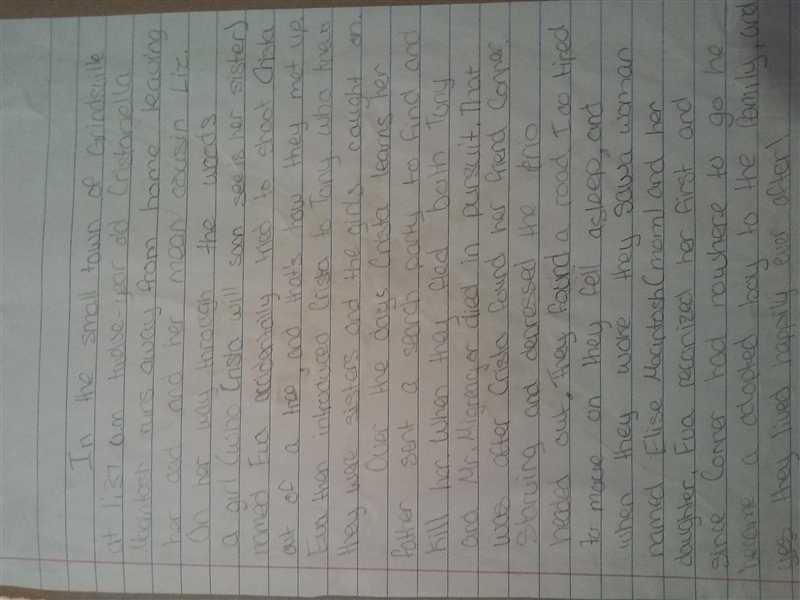 In the small town of Grindsville
at 1:37 a.m twelve-year old Cristanella
Macintosh runs away from home leaving
her dad and her mean cousin Liz.
On her way through the woods
a girl (who Crista will soon see is her sister)
named Eva accidentally tried to shoot Crista
out of a tree, and that's how they met up.
Eva then introduced Crista to Tony who knew
they were sisters and the girls caught on.
Over the days Crista learns her
father sent a search party to find and
kill her. When they fled both Tony
and Mr. Migragor died in pursuit. That
was after Crista found her friend Conner.
Starving and depressed the trio
headed out. They found a road. Too tired
to move on they fell asleep, and
when they woke they saw a woman
named Elise Macintosh (mom) and her
daughter, Eva reconized her first and
since Conner had nowhere to go he
became a adopted boy to the family, and
yes they lived happily ever after!